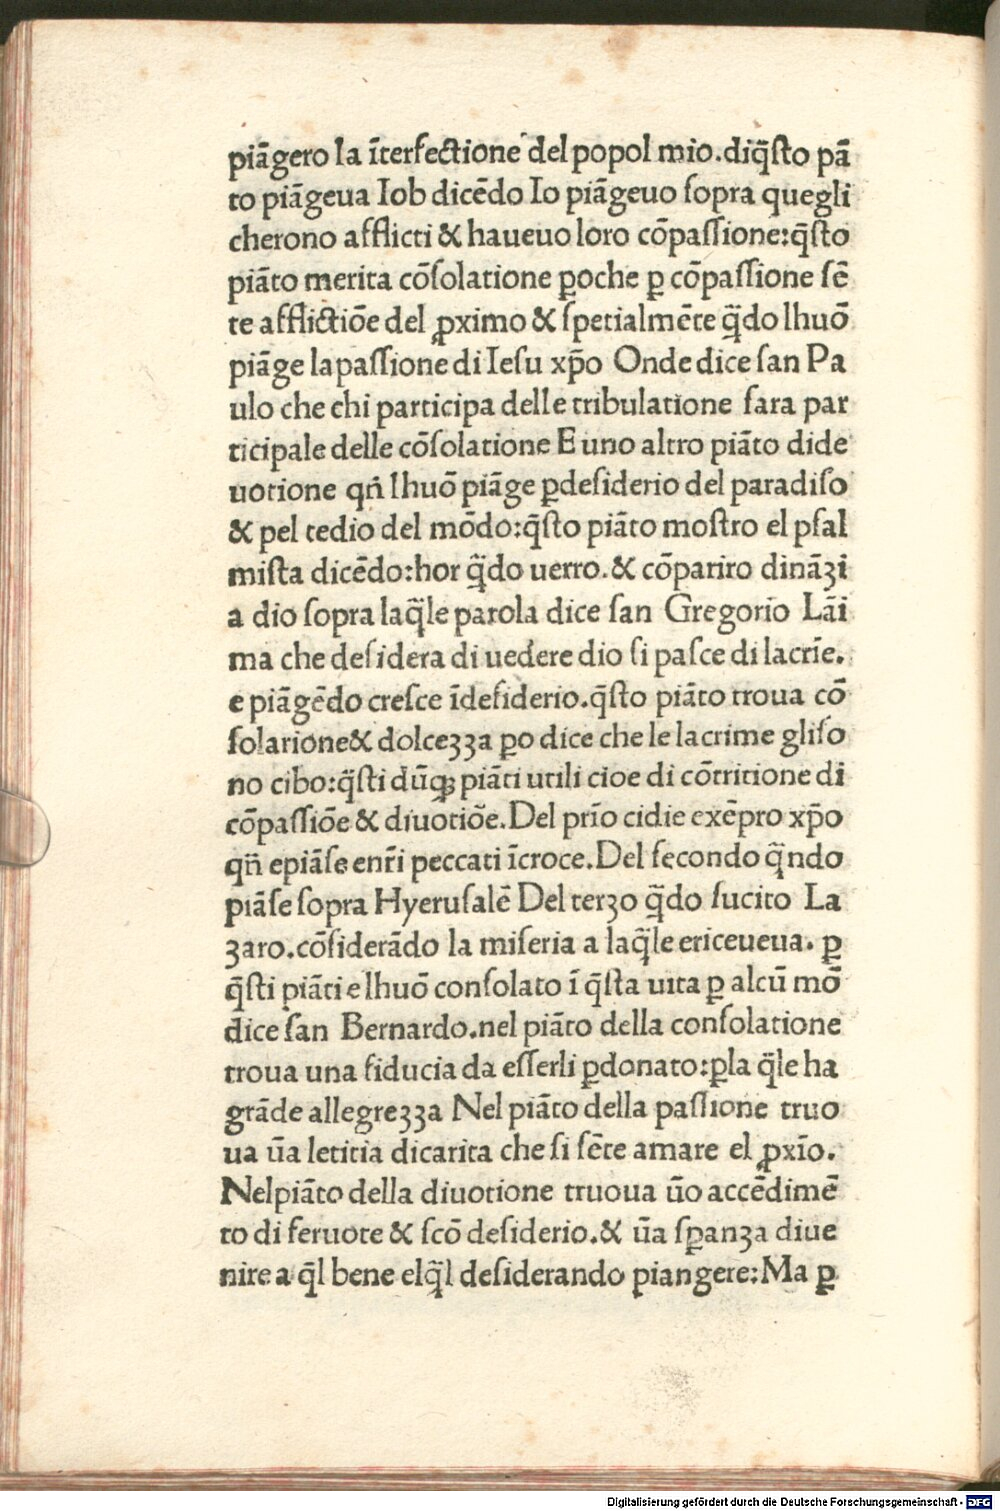 piãgero la ĩterfectione del popol mio.diq̃sto pã
to piãgeua Iob dicẽdo Io piãgeuo sopra quegli
cherono afflicti & haueuo loro cõpassione:q̃sto
piãto merita cõsolatione ꝑoche ꝑ cõpassione sẽ
te afflictiõe del ꝓximo & spetialmẽte q̃do lhuõ
piãge lapassione di Iesu xp̃o Onde dice san Pa
ulo che chi participa delle tribulatione sara par
ticipale delle cõsolatione E uno altro piãto dide
uotione qñ lhuõ piãge ꝑdesiderio del paradiso
& pel tedio del mõdo:q̃sto piãto mostro el psal
mista dicẽdo:hor q̃do uerro.& cõpariro dinãzi
a dio sopra laq̃le parola dice san Gregorio Lãi
ma che desidera di uedere dio si pasce di lacrĩe.
e piãgẽdo cresce ĩdesiderio.q̃sto piãto troua cõ
solarione& dolcezza ꝑo dice che le lacrime gliso
no cibo:q̃sti dũqꝫ piãti utili cioe di cõtritione di
cõpassiõe & diuotiõe.Del prĩo cidie exẽpro xp̃o
qñ epiãse enr̃i peccati ĩcroce.Del secondo q̃ndo
piãse sopra Hyerusalẽ Del terzo q̃do sucito La
zaro.cõsiderãdo la miseria a laq̃le ericeueua. ꝑ
q̃sti piãti e lhuõ consolato ĩ q̃sta uita ꝑ alcũ mõ
dice san Bernardo.nel piãto della consolatione
troua una fiducia da esserli ꝑdonato:ꝑla q̃le ha
grãde allegrezza Nel piãto della passione truo
ua ũa letitia dicarita che si sẽte amare el ꝓxĩo.
Nelpiãto della diuotione truoua ũo accẽdimẽ
to di feruote & scõ desiderio.& ũa sꝑanza diue
nire a q̃l bene elq̃l desiderando piangere:Ma ꝑ
Digitalisierung gefördert durch die Deutsche Forschungsgemeinschaft - DFG